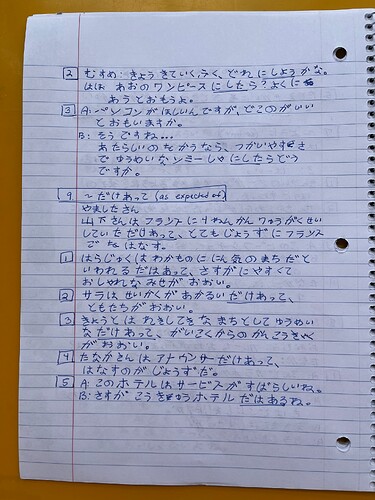 2 むすめ: きょう きていく ふく、どれ にしようかな。
はは あおの ワンピース にしたら? よくに
あうとおもうよ。
3 A: パソコンが ほしいんですが、どこのがいい
とおもいますか。
B: そうですね...
あたらしいのをかうなら、つかいやすさ
で ゆうめいな ソニーしゃにしたらどう
ですか。
9 ~だけあって (as expected of)
やましたさん
山下さんは フランスに 4ねんかん りゅうがくせい
していただけあって、とてもじょうずに フランス
で はなす。
1 はらじゅくは わかものに にん気の まちだと
いわれるだはあって、さすがに やすくて
おしゃれな みせが おおい。
2 サラは せいかくが あかるいだけあって、
ともだちが おおい。
3 きょうとは れきしてきな まちとして ゆうめい
なだけあって、がいこくからの かんこうきゃく
がおおい。
4 たなかさんは アナウンサーだけあって、
はなすのが じょうずだ。
5 A: このホテルは サービスが すばらしいね。
B: さすが こうきゅうホテル だはあるね。